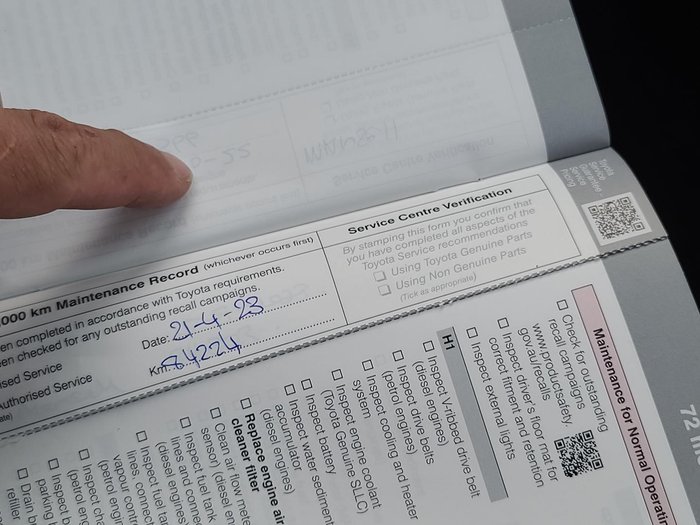 Toyota
Service
Guarantee
Service
Pricing
,000 km Maintenance Record (whichever occurs first)
en completed in accordance with Toyota requirements.
en checked for any outstanding recall campaigns.
Date: 21-4-23
ised Service
Km: 84224
Authorised Service
ate)
Service Centre Verification
By stamping this form you confirm that
you have completed all aspects of the
Toyota Service recommendations
Using Toyota Genuine Parts
Using Non Genuine Parts
(Tick as appropriate)
72
Maintenance for Normal Operatin
Check for outstanding
recall campaigns
www.productsafety.
gov.au/recalls
Inspect driver's floor mat for
correct fitment and retention
Inspect external lights
H1
Inspect V-ribbed drive belt
(diesel engines)
Inspect drive belts
(petrol engines)
Inspect cooling and heater
system
Inspect engine coolant
(Toyota Genuine SLLC)
Inspect battery
Inspect water sediment
accumulator
(diesel engines)
Replace engine air
cleaner filter
Clean air flow mete
sensor) (diesel en
Inspect fuel tank
lines and conne
(diesel engines
Inspect fuel ta
lines, connec
vapour contr
(petrol engin
Inspect cha
(petrol eng
Inspect b
parking
Drain b
refiller